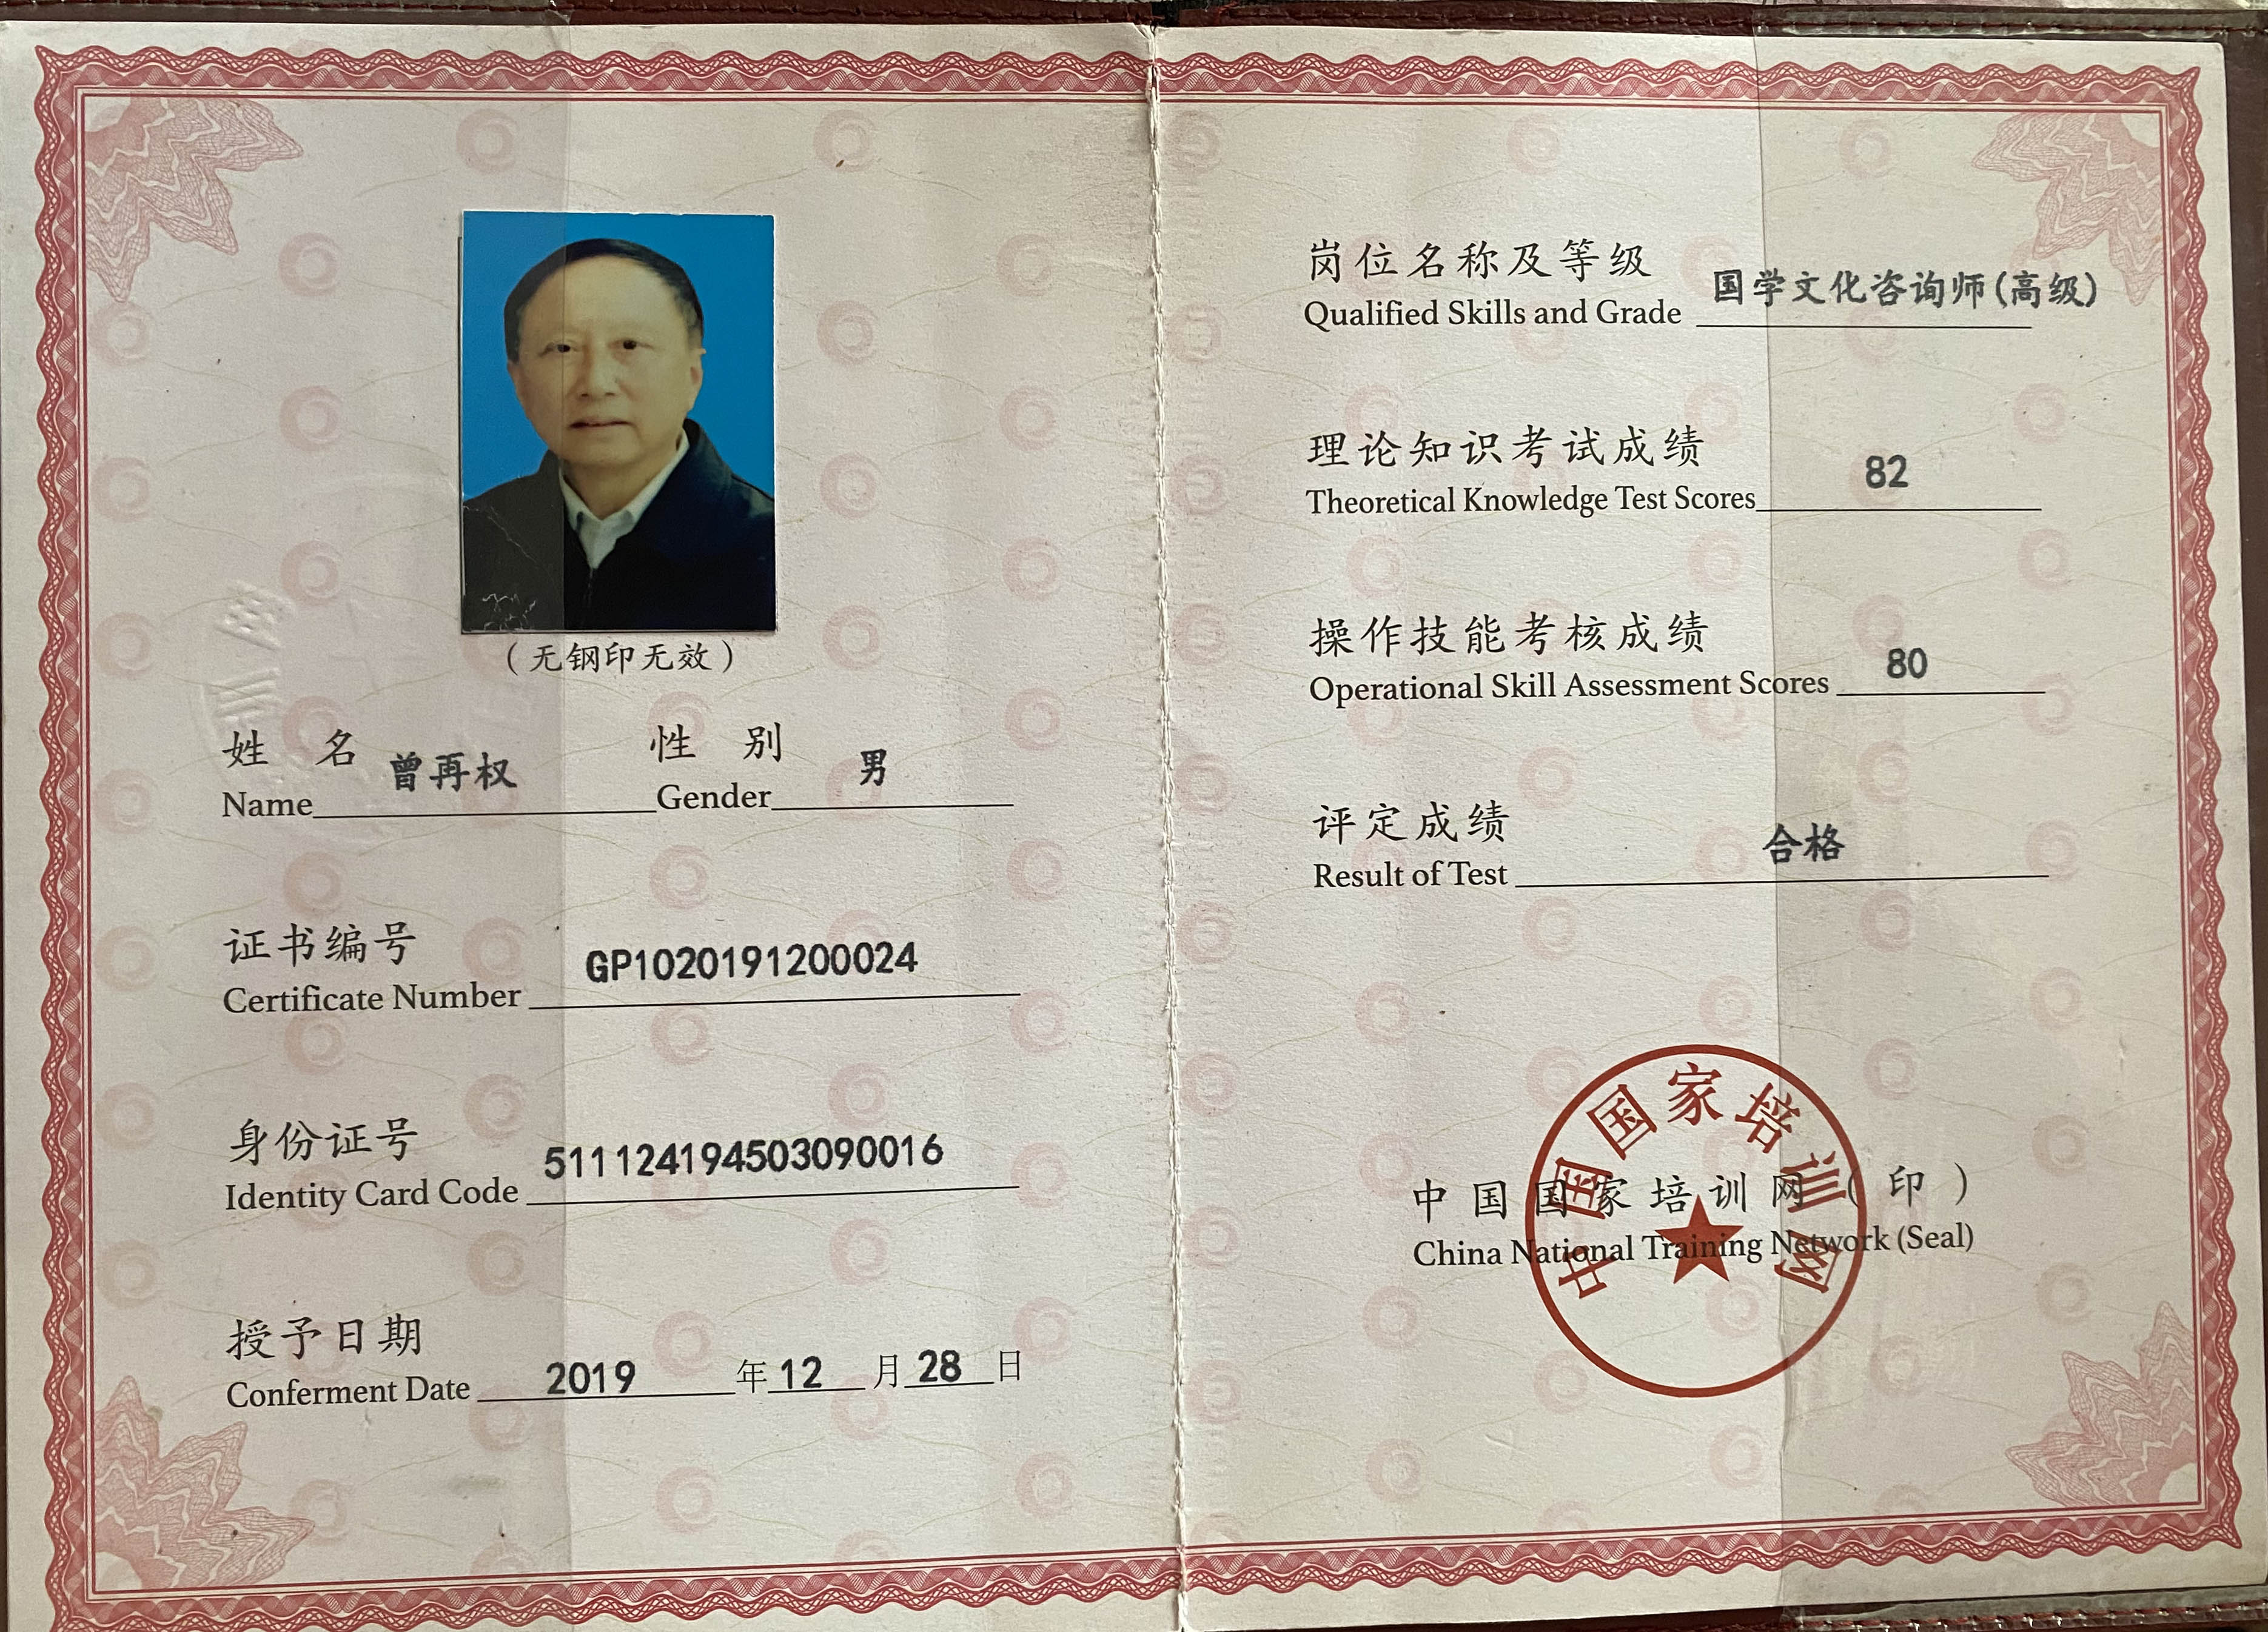 （无钢印无效）
姓 名 曾再权 性 别 男
Name Gender
证书编号
Certificate Number GP1020191200024
身份证号
Identity Card Code 511124194503090016
授予日期
Conferment Date 2019 年 12 月 28 日
岗位名称及等级
Qualified Skills and Grade 国学文化咨询师(高级)
理论知识考试成绩
Theoretical Knowledge Test Scores 82
操作技能考核成绩
Operational Skill Assessment Scores 80
评定成绩
Result of Test 合格
中国国家培训网
中国国家培训网（印）
China National Training Network (Seal)